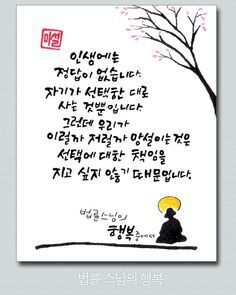 마설
인생에는
정답이 없습니다.
자기가 선택한 대로
사는 것뿐입니다.
그런데 우리가
이럴까 저럴까 망설이는것은
선택에 대한 책임을
지고 싶지 않기 때문입니다.
법륜스님의
행복 중에서
법륜 스님의 행복